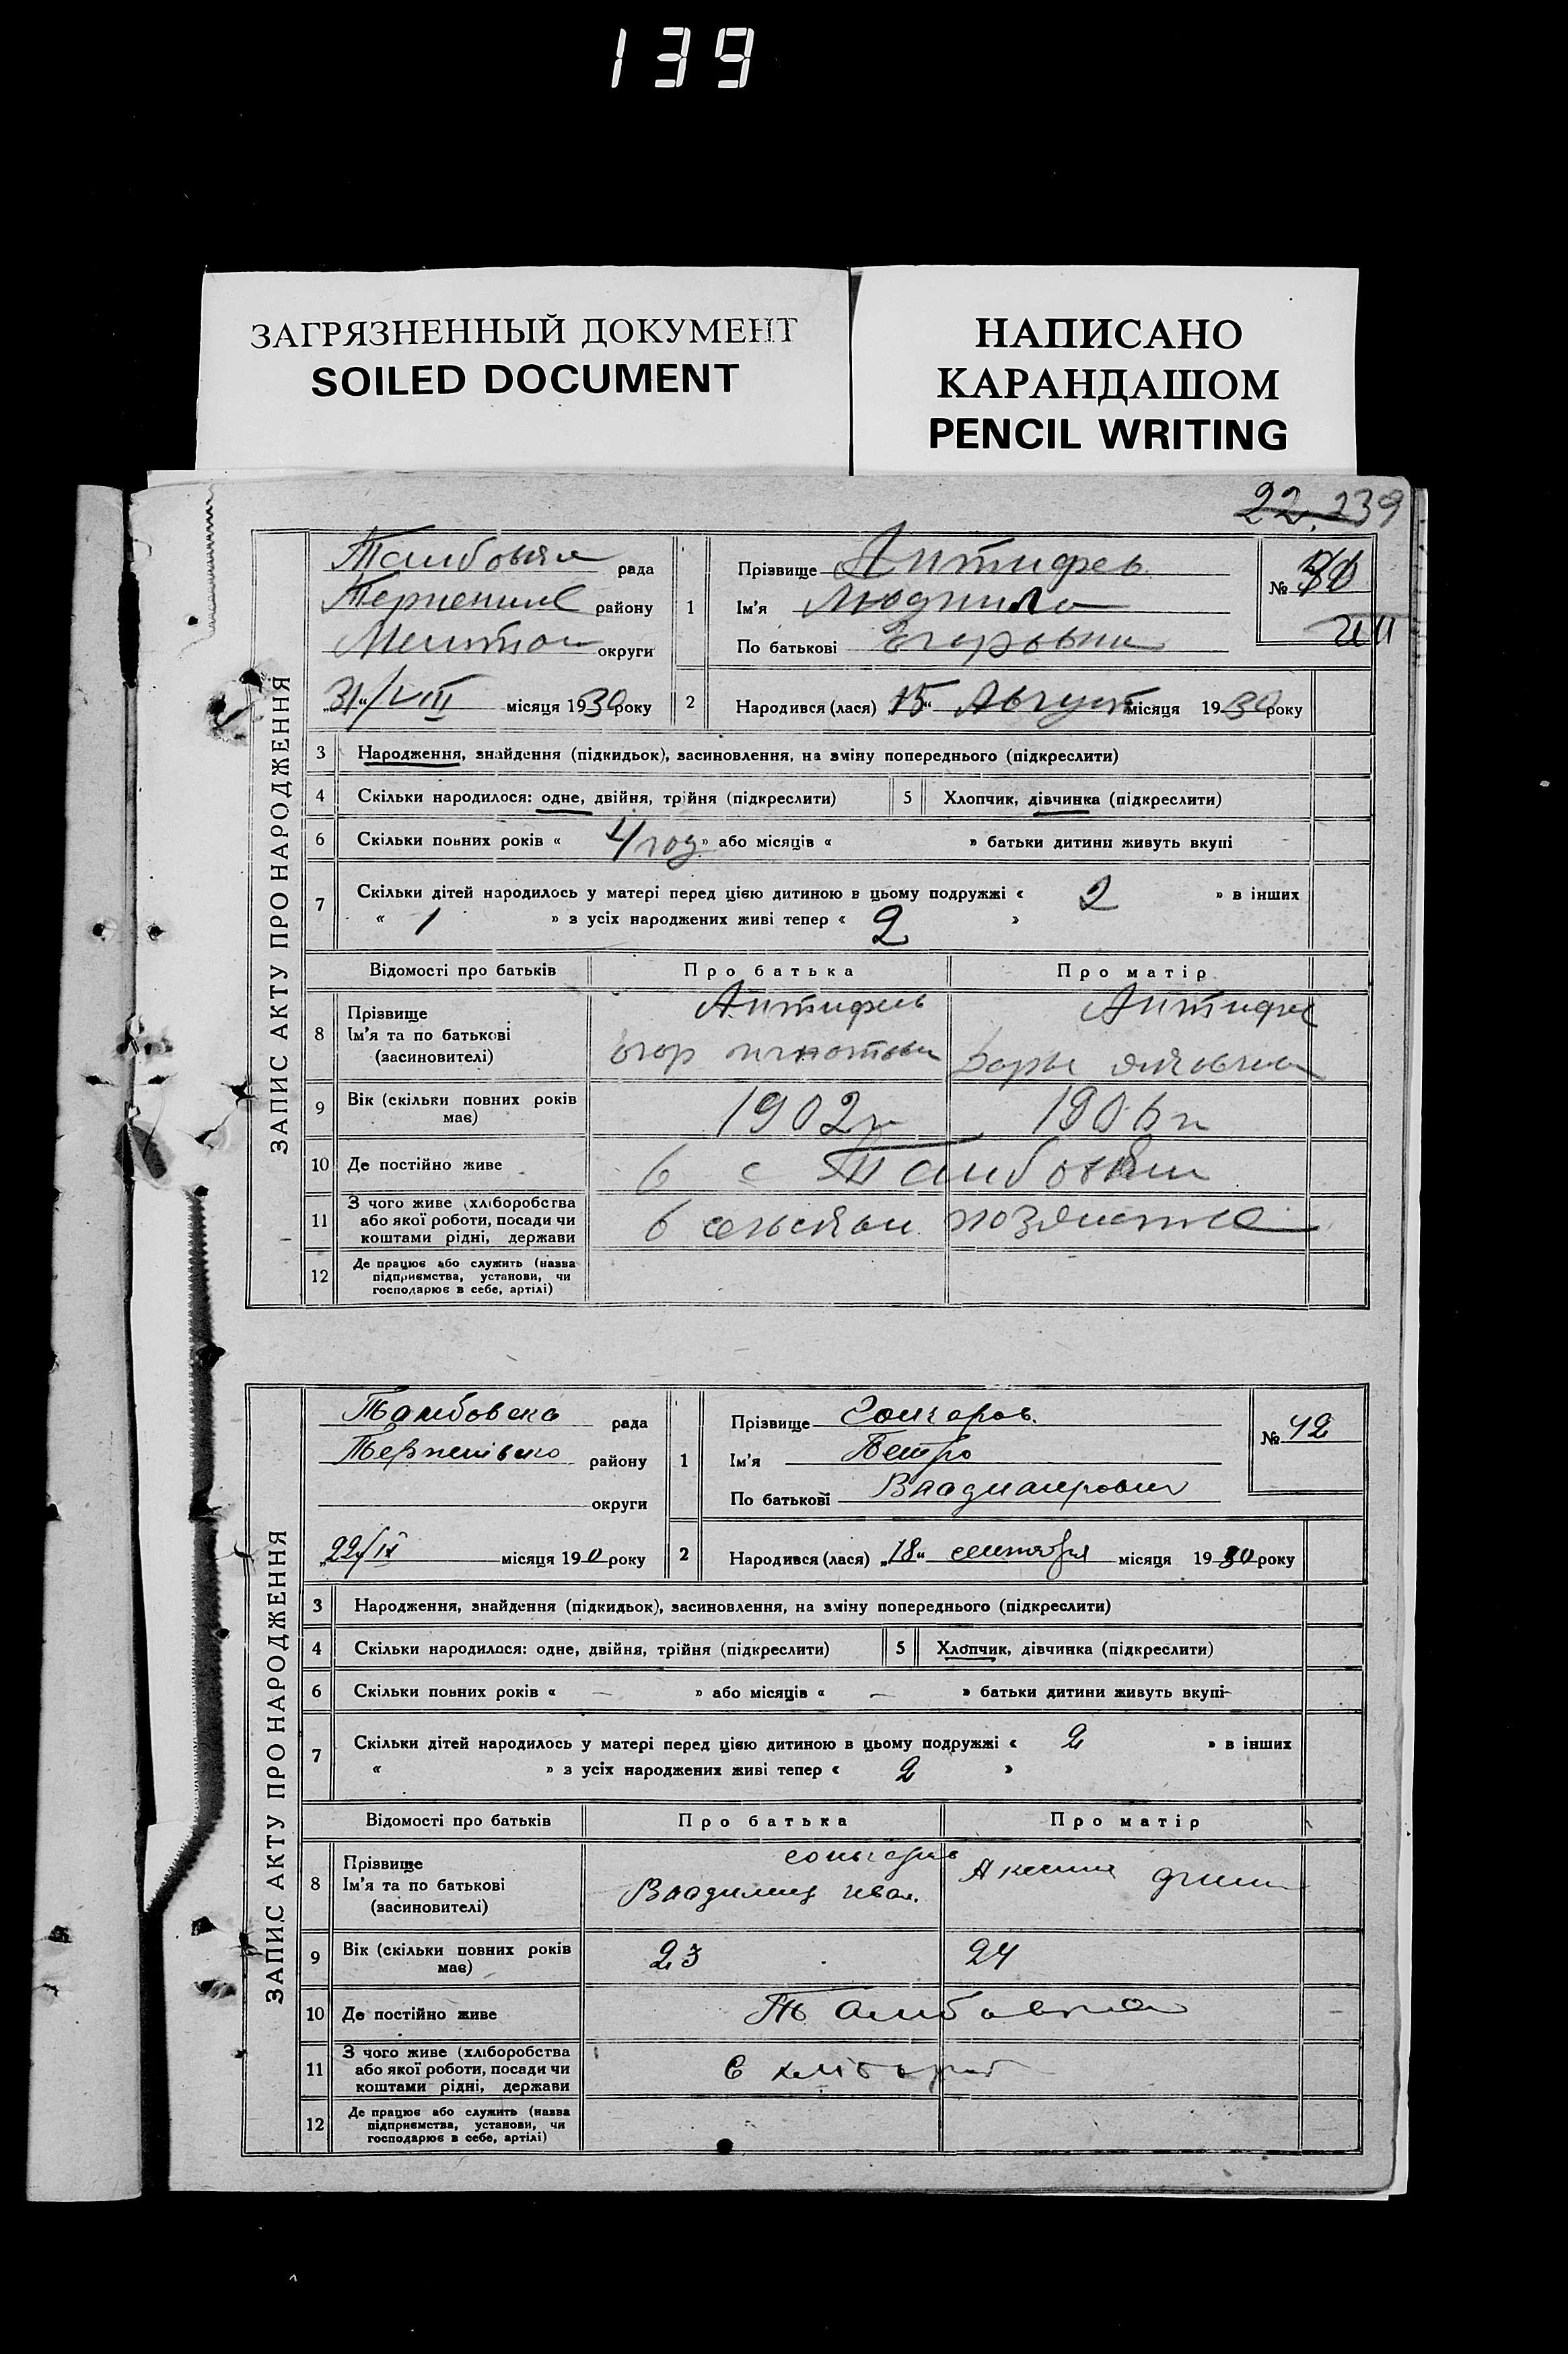 139
ЗАГРЯЗНЕННЫЙ ДОКУМЕНТ
SOILED DOCUMENT
НАПИСАНО
КАРАНДАШОМ
PENCIL WRITING
22. 139
ЗАПИС АКТУ ПРО НАРОДЖЕННЯ
рада
району
округи
"31"/VIII місяця 1930 року
1 Прізвище Антифеев
Ім'я Людмила
По батькові Егоровна
№
2 Народився (лася) "15" Август місяця 1930 року
3 Народження, знайдення (підкидьок), засиновлення, на зміну попереднього (підкреслити)
4 Скільки народилося: одне, двійня, трійня (підкреслити) 5 Хлопчик, дівчинка (підкреслити)
6 Скільки повних років « 4 год » або місяців « » батьки дитини живуть вкупі
7 Скільки дітей народилось у матері перед цією дитиною в цьому подружжі « 2 » в інших
« 1 » з усіх народжених живі тепер « 2 »
Відомості про батьків Про батька Про матір
8 Прізвище
Ім'я та по батькові
(засиновителі)
Егор
9 Вік (скільки повних років
має) 1902 г 1906 г
10 Де постійно живе в с
11 З чого живе (хліборобства
або якої роботи, посади чи
коштами рідні, держави
в
12 Де працює або служить (назва
підприємства, установи, чи
господарює в себе, артілі)
ЗАПИС АКТУ ПРО НАРОДЖЕННЯ
Тамбовска рада
району
округи
"22/IX місяця 190 року
1 Прізвище Гончаров.
Ім'я Петро
По батькові Владимирович
№ 42
2 Народився (лася) "18" сентября місяця 1930 року
3 Народження, знайдення (підкидьок), засиновлення, на зміну попереднього (підкреслити)
4 Скільки народилося: одне, двійня, трійня (підкреслити) 5 Хлопчик, дівчинка (підкреслити)
6 Скільки повних років « — » або місяців « — » батьки дитини живуть вкупі
7 Скільки дітей народилось у матері перед цією дитиною в цьому подружжі « 2 » в інших
« » з усіх народжених живі тепер « 2 »
Відомості про батьків Про батька Про матір
8 Прізвище
Ім'я та по батькові
(засиновителі)
Владимир Иван.
9 Вік (скільки повних років
має) 23 24
10 Де постійно живе Тамбовка
11 З чого живе (хліборобства
або якої роботи, посади чи
коштами рідні, держави
12 Де працює або служить (назва
підприємства, установи, чи
господарює в себе, артілі)